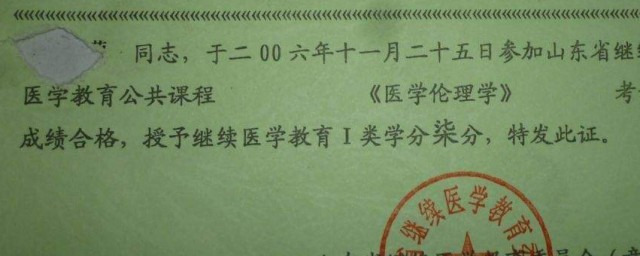 同志，于二00六年十一月二十五日参加山东省继续
医学教育公共课程 《医学伦理学》 考
成绩合格，授予继续医学教育I类学分柒分，特发此证。
继续医学教育委